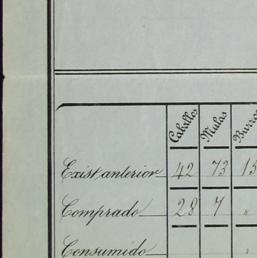 Caballos Mulas Burros
Exist anterior 42 73 15
Comprado 28 7 "
Consumido "